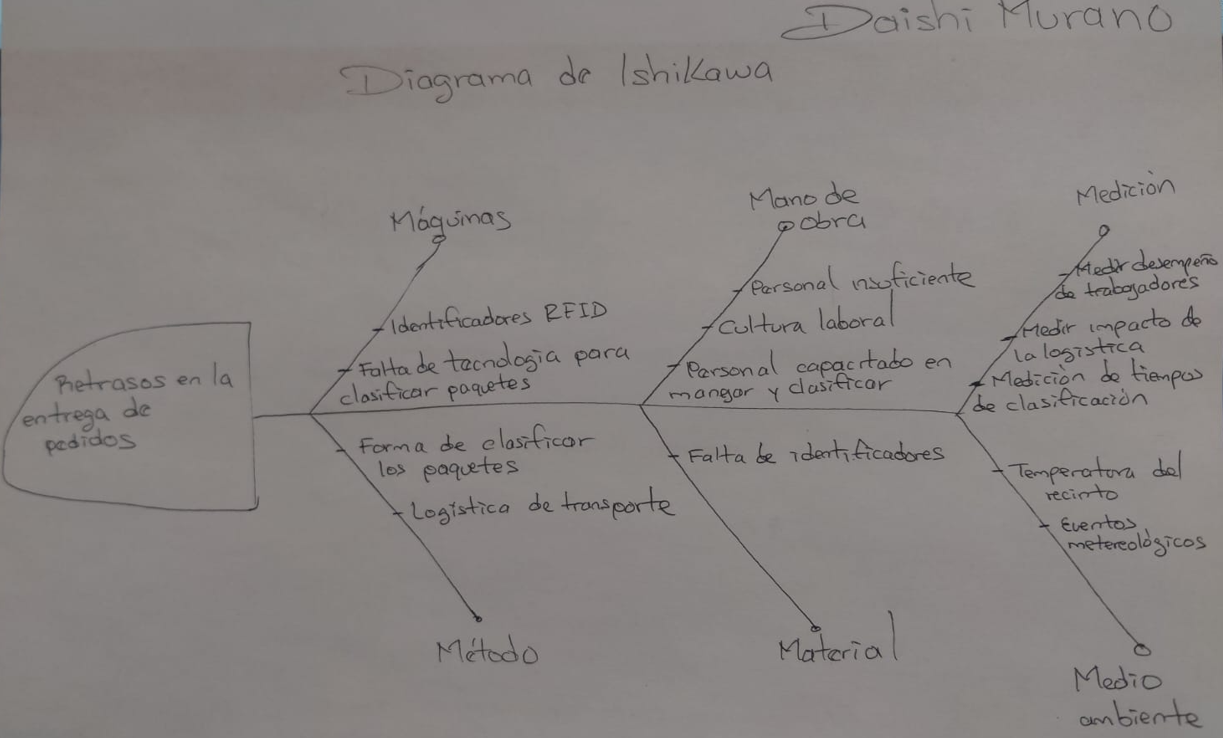 Daishi Murano
Diagrama de Ishikawa
Máquinas
Identificadores RFID
Falta de tecnologia para
clasificar paquetes
Mano de
obra
Personal insuficiente
Cultura laboral
Personal capacitado en
manejar y clasificar
Medición
Medir desempeño
de trabajadores
Medir impacto de
la logistica
Medición de tiempos
de clasificación
Retrasos en la
entrega de
pedidos
Forma de clasificar
los paquetes
Logística de transporte
Método
Falta de identificadores
Material
Temperatura del
recinto
Eventos
metereológicos
Medio
ambiente